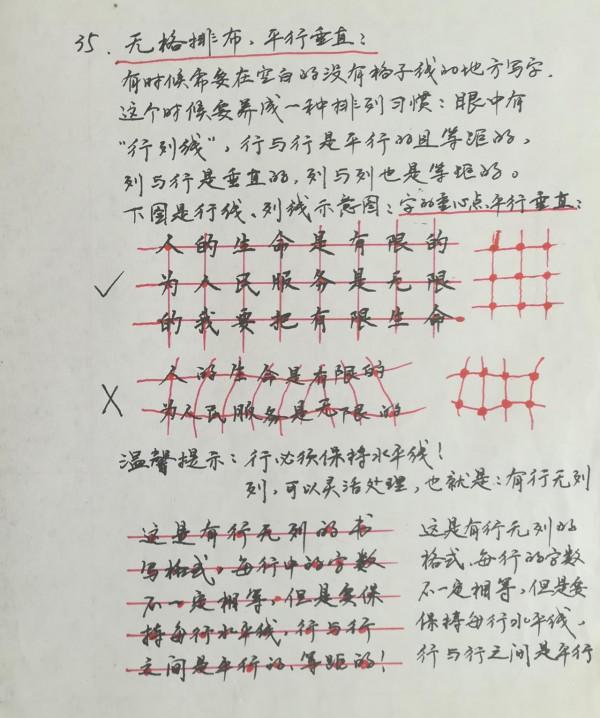 35. 无格排布、平行垂直：
有时候需要在空白的没有格子线的地方写字.
这个时候要养成一种排列习惯：眼中有
“行列线”，行与行是平行的且等距的，
列与行是垂直的，列与列也是等距的。
下图是行线、列线示意图：字的重心点平行垂直：
人的生命是有限的
✓ 为人民服务是无限
的我要把有限生命
人的生命是有限的
X 为人民服务是无限的
温馨提示：行必须保持水平线！
列，可以灵活处理，也就是：有行无列
这是有行无列的书
写格式，每行中的字数
不一定相等，但是要保
持每行水平线，行与行
之间是平行的、等距的！
这是有行无列的
格式，每行的字数
不一定相等，但是要
保持每行水平线，
行与行之间是平行